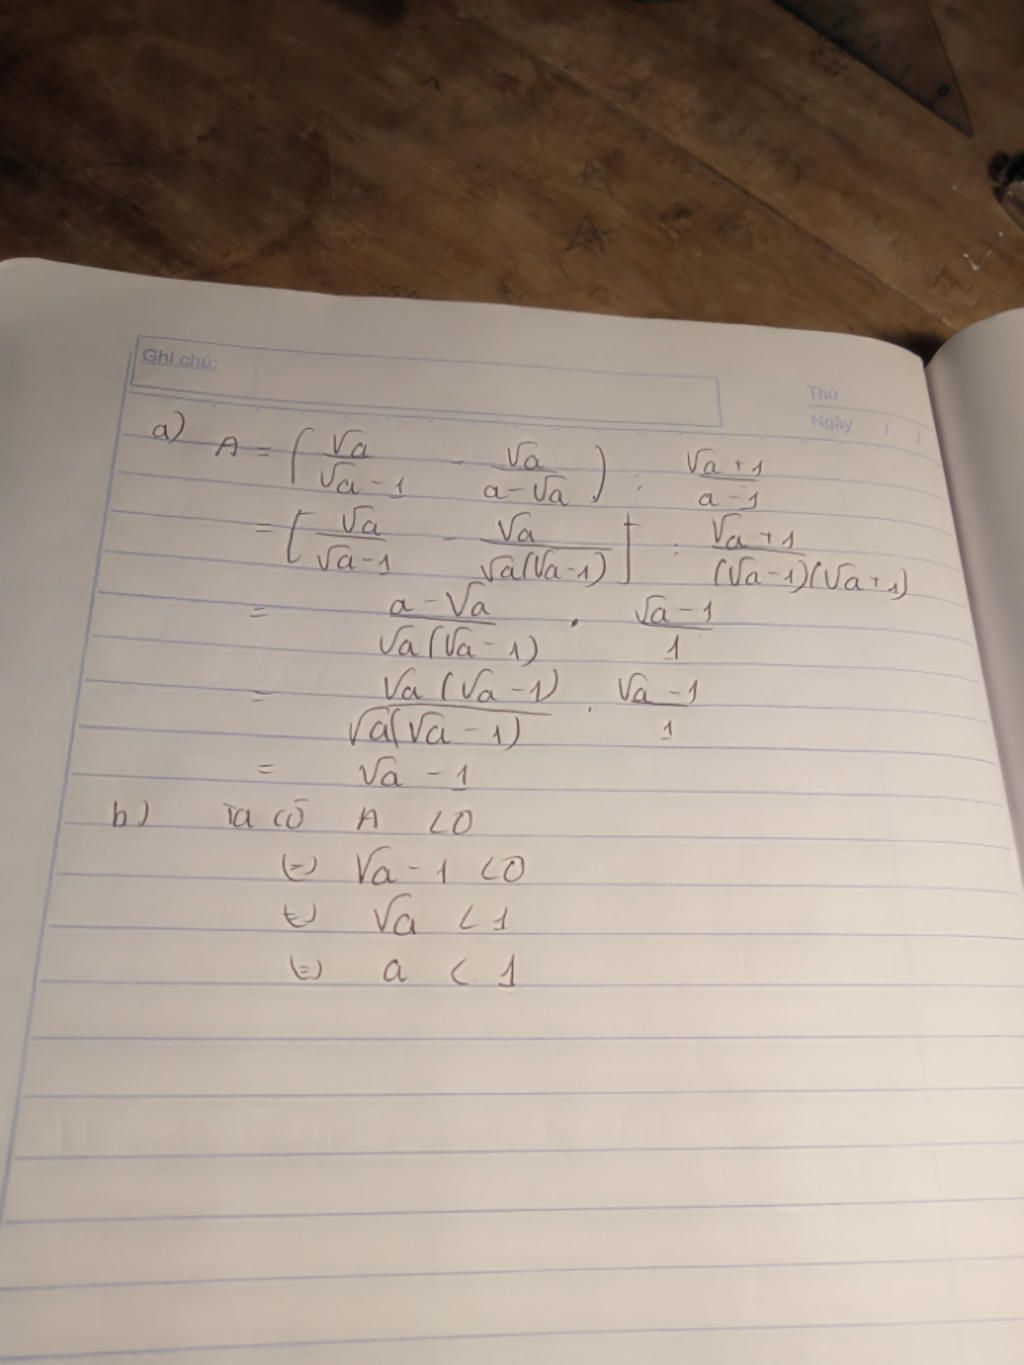 Ghi chú:
Thứ
Ngày / /
a) A = ( √a / (√a - 1) - √a / (a - √a) ) : (√a + 1) / (a - 1)
= [ √a / (√a - 1) - √a / (√a(√a - 1)) ] : (√a + 1) / ((√a - 1)(√a + 1))
= (a - √a) / (√a(√a - 1)) . (√a - 1) / 1
= (√a(√a - 1)) / (√a(√a - 1)) . (√a - 1) / 1
= √a - 1
b) Ta có A < 0
(=) √a - 1 < 0
(=) √a < 1
(=) a < 1